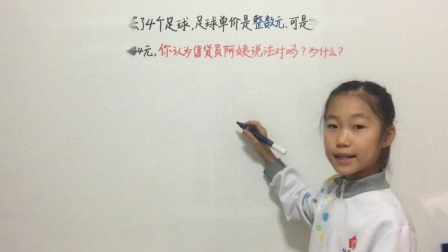 了4个足球,足球单价是整数元.可是
4元,你认为售货员阿姨说法对吗?为什么?